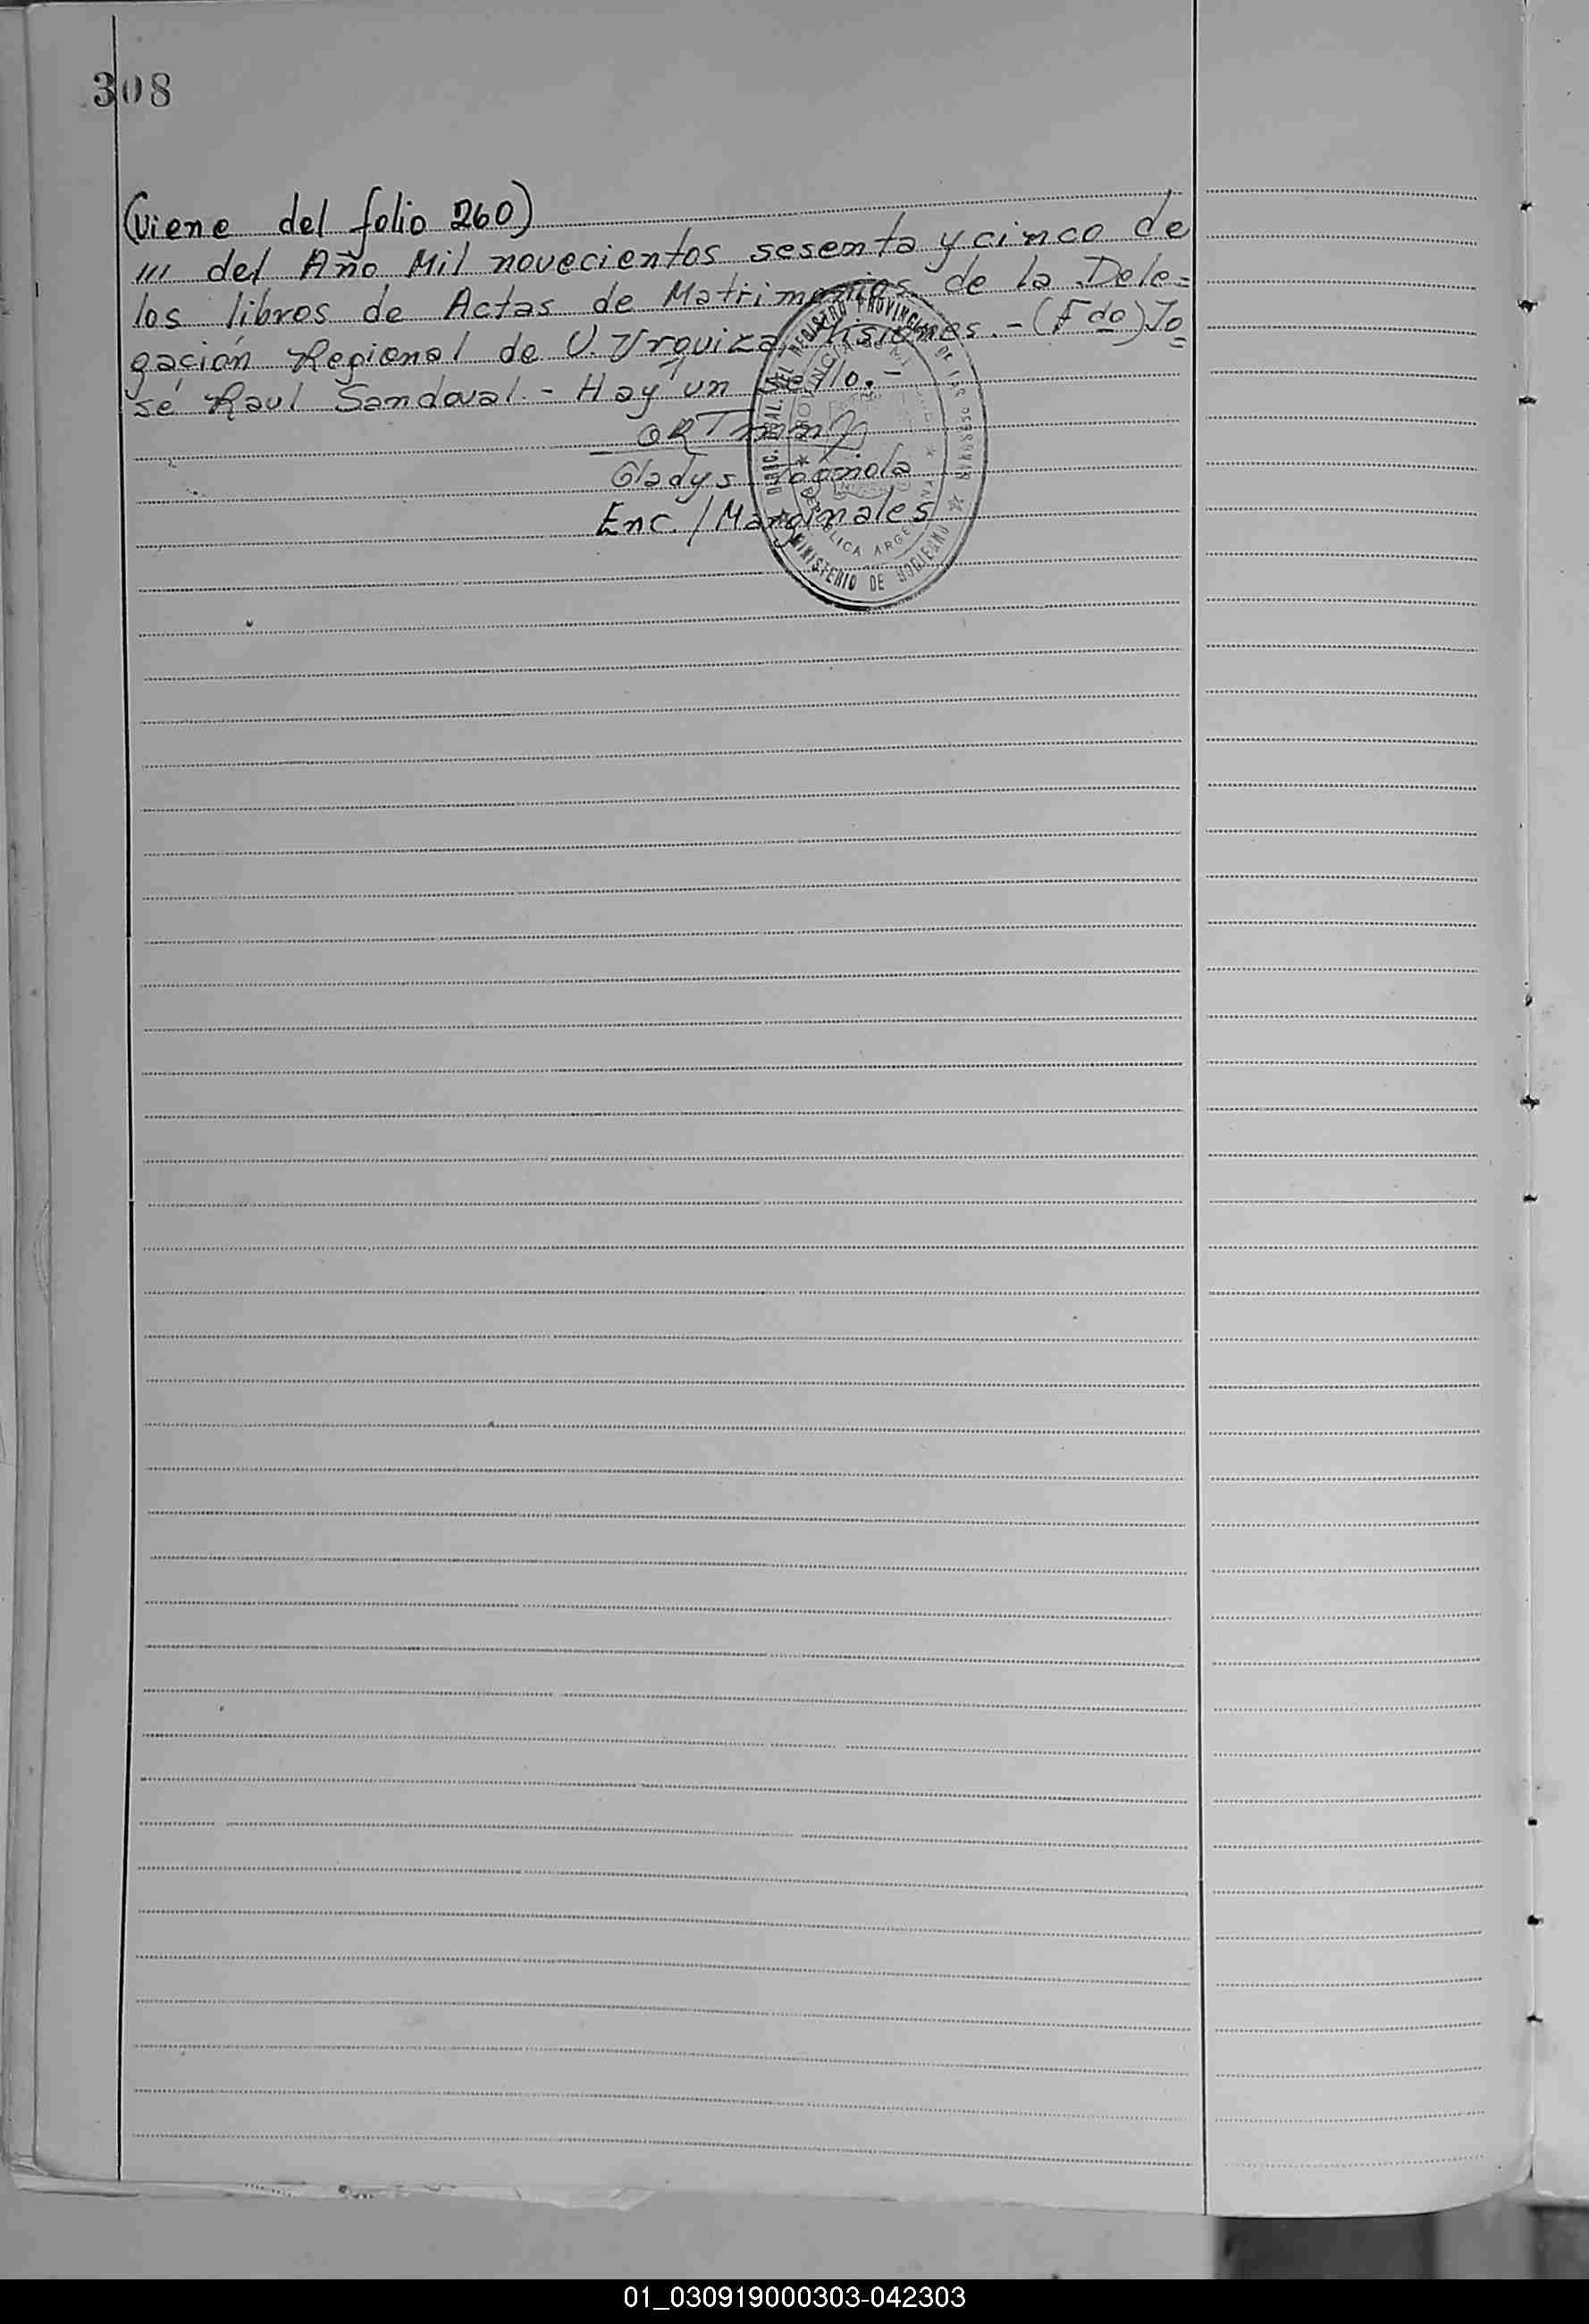 308
(Viene del folio 260)
/// del Año Mil novecientos sesenta y cinco de
los libros de Actas de Matrimonios de la Dele=
gación Regional de V. Urquiza, Misiones.- (Fdo) Jo
sé Raul Sandoval.- Hay un sello.-
Gladys
Enc./Marginales
DIREC. GRAL. DEL REGISTRO PROVINCIAL DE LAS PERSONAS
MINISTERIO DE GOBIERNO
PROVINCIA DE MISIONES
REPUBLICA ARGENTINA
01_030919000303-042303